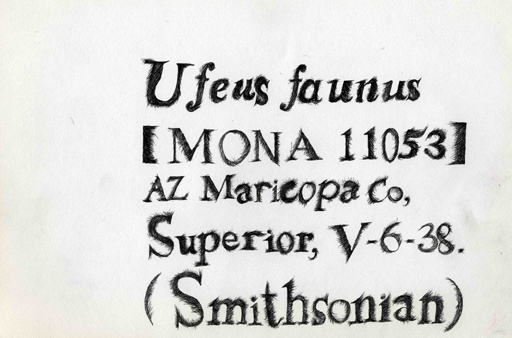 Ufeus faunus
[MONA 11053]
AZ Maricopa Co,
Superior, V-6-38.
(Smithsonian)